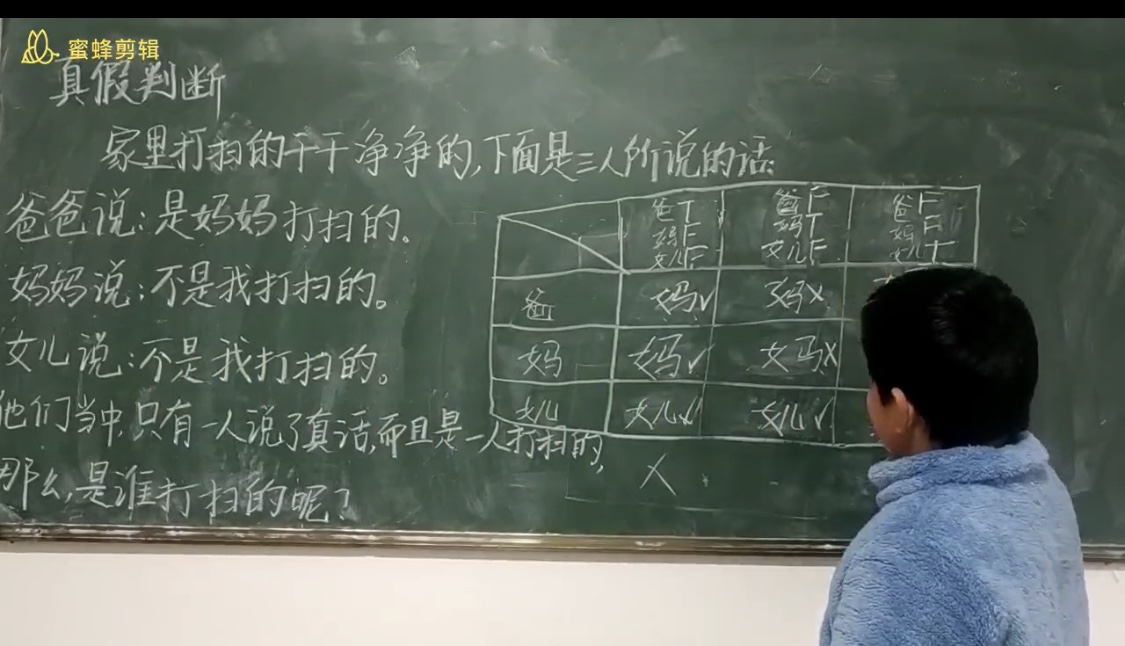 蜜蜂剪辑
真假判断
家里打扫的干干净净的,下面是三人所说的话:
爸爸说:是妈妈打扫的。
妈妈说:不是我打扫的。
女儿说:不是我打扫的。
他们当中,只有一人说了真话,而且是一人打扫的,
那么,是谁打扫的呢?
爸T 爸F 爸F
妈F 妈T 妈F
女儿F 女儿F 女儿T
爸 妈√ 妈×
妈 妈√ 妈×
女儿 女儿√ 女儿√
×